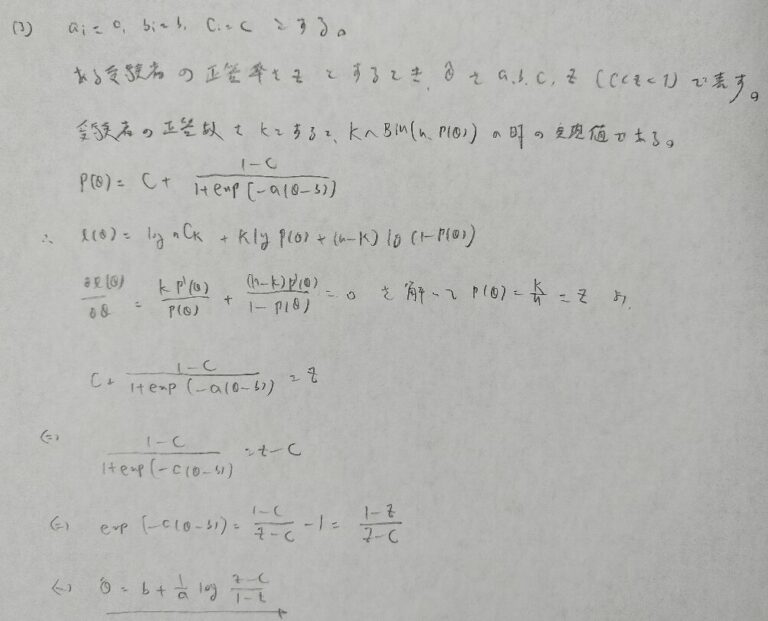 (3) ai = 0, bi = b, Ci = C とする。
ある受験者の正答率を z とするとき、θ̂ を a, b, C, z (C<z<1) で表す。
受験者の正答数を K とすると、K〜Bin(n, P(θ)) の時の実現値である。
P(θ) = C + \frac{1-C}{1+exp(-a(θ-b))}
∴ l(θ) = log nCk + K log P(θ) + (n-K) log (1-P(θ))
\frac{∂l(θ)}{∂θ} = \frac{K P'(θ)}{P(θ)} + \frac{(n-K)P'(θ)}{1-P(θ)} = 0 を解いて P(θ) = \frac{K}{n} = z より
C + \frac{1-C}{1+exp(-a(θ-b))} = z
⇔ \frac{1-C}{1+exp(-c(θ-b))} = z-C
⇔ exp(-c(θ-b)) = \frac{1-C}{z-C} - 1 = \frac{1-z}{z-C}
⇔ θ̂ = b + \frac{1}{a} log \frac{z-C}{1-z}